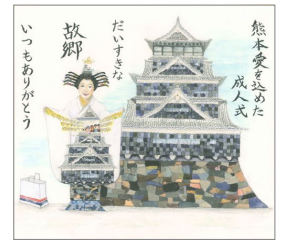 熊本愛を込めた
成人式
だいすきな
故郷
いつもありがとう